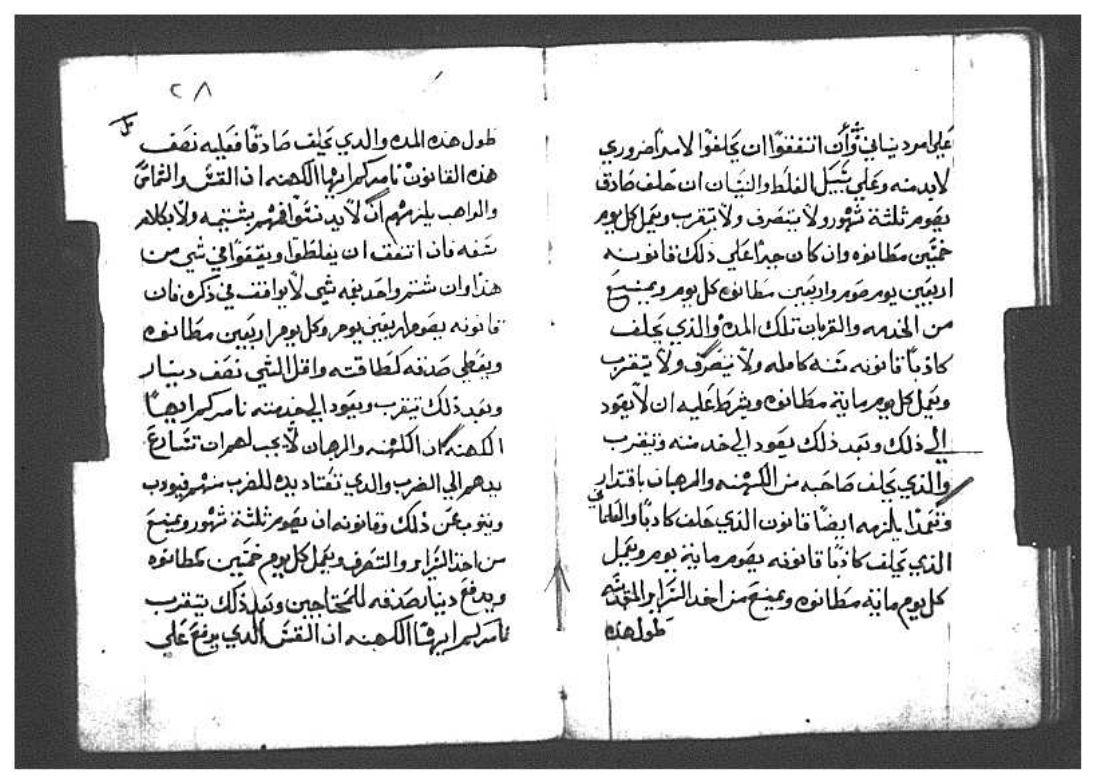 على امر دنياني وأن اتفقوا ان يحلفوا لامر ضروري
لابد منه وعلي سبيل الغلط والنسيان ان حلف صادق
يصوم ثلثة شهور ولا يتصرف ولا يتقرب ويعمل كل يوم
خمسين مطانوه وان كان جيدا على ذلك قانونه
اربعين يوم صوم واربعين مطانوه كل يوم ويمتنع
من الخدمه والقربان تلك المده والذي يحلف
كاذبا قانونه سنه كامله ولا يتصرف ولا يتقرب
ويعمل كل يوم ماية مطانوه ويشرط عليه ان لا يعود
الي ذلك وبعد ذلك يعود الي خدمته ويتقرب
والذي يحلف صاحبه من الكهنه والرهبان باقتدار
وتعمدا يلزمه ايضا قانون الذي حلف كاذبا والعلماني
الذي يحلف كاذبا قانونه يصوم ماية يوم ويعمل
كل يوم ماية مطانوه ويمنع من اخذ السراير المقدسه
طول هذه
٢٨
طول هذه المده والذي يحلف صادقا فعليه نصف
هذه القانون نامركم ايها الكهنه ان القس والشماس
والراهب يلزمهم ان لا يدنسوا افهمهم بشتيمه ولا بكلام
سفه فان اتفق ان يغلطوا ويقعوا في شي من
هذا وان شتم واحد بغيه شي لا يوافق في ذكره فان
قانونه يصوم اربعين يوم وكل يوم اربعين مطانوه
ويعطي صدقه كطاقته واقل الشي نصف دينار
وبعد ذلك يتقرب ويعود الي خدمته نامركم ايها
الكهنه ان الكهنه والرهبان لا يجب لهم ان تسارع
يدهم الي الضرب والذي تعتاد يده للضرب منهم فيودب
ويتوب عن ذلك وقانونه ان يصوم ثلثة شهور ويمنع
من اخذ السراير والتصرف ويعمل كل يوم خمسين مطانوه
ويدفع دينار صدقه للمحتاجين وبعد ذلك يتقرب
نامركم ايها الكهنه ان القس الذي يرفع على